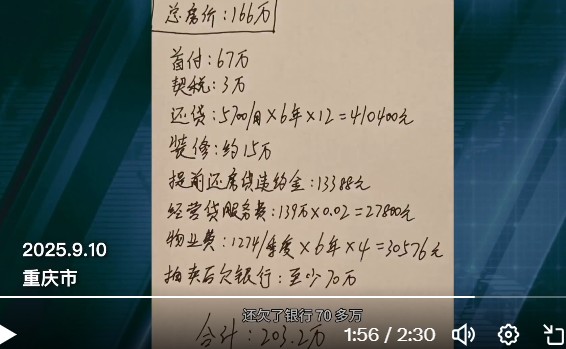 总房价:166万
首付:67万
契税:3万
还贷:5700/月×6年×12=410400元
装修:约15万
提前还房贷违约金:13388元
经营贷服务费:139万×0.02=27800元
物业费:1274/季度×6年×4=30576元
拍卖后欠银行:至少70万
2025.9.10
重庆市
还欠了银行70多万
合计:203.2万
1:56 / 2:30